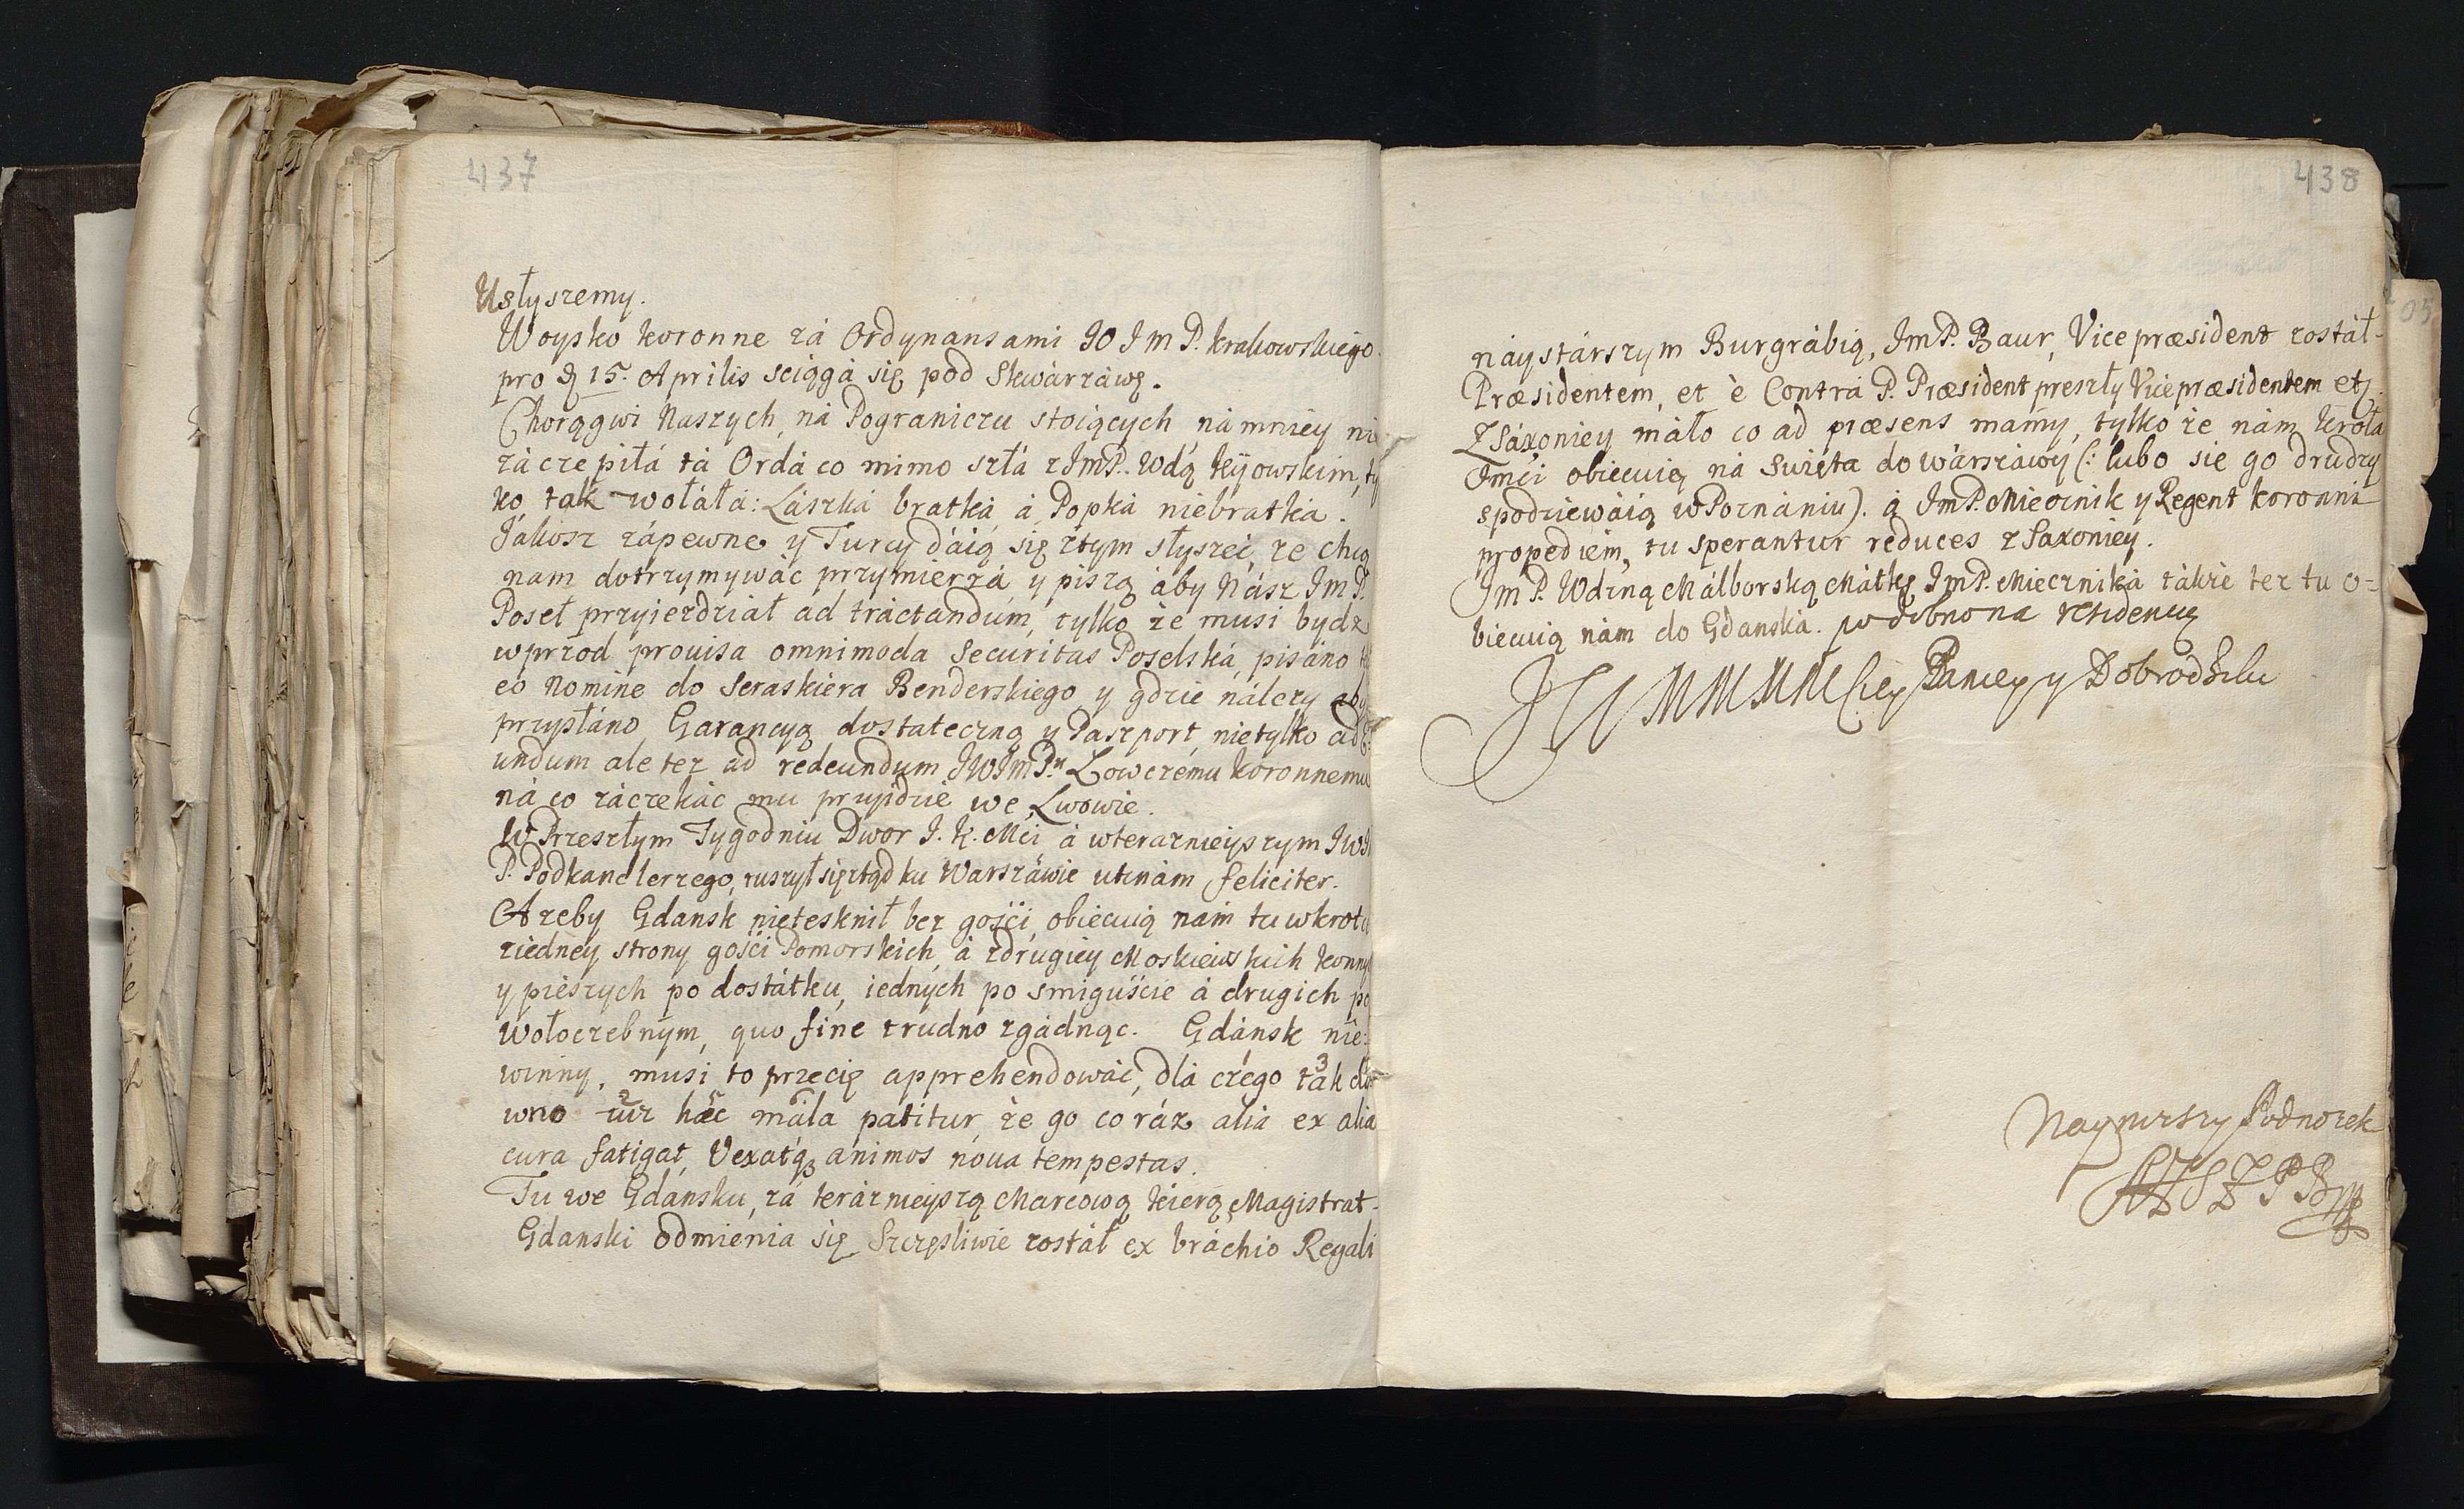 437
Usłyszemy.
Woysko koronne zá Ordynansami JO JmP. krakowskiego
pro 15. Aprilis sciąga się pod Skwarzáwę.
Chorągwi Naszych, ná Pograniczu stoiących námniey nie
záczepiłá tá Ordá co mimo szłá z JmP. Wdą Kyowskim, ty
ko ták wołáłá: Lászká bratká, á Popká niebratká.
Jákosz zápewne y Turcy dáią się ztym słyszeć, ze chcą
nam dotrzymywáć przymierzá, y piszą áby Nász JmP.
Poseł przyiezdział ad tráctandum, tylko że musi bydz
wprzod prouisa omnimoda Securitas Poselská, pisáno
eo Nomine do Seraskiera Benderskiego y gdzie nálezy aby
przysłáno Garancyą dostateczną y Paszport nietylko ad
undum ale tez ad redeundum JWJmPu Łowczemu koronnemu
ná co záczekáć mu przyidzie we Lwowie.
W Przeszłym Tygodniu Dwor J. K. Mci á wteraznieyszym JWJ
P. Podkanclerzego, ruszył się ztąd ku Warszáwie utinám feliciter.
A zeby Gdansk nietesknił bez gości, obiecuią nám tu wkrotc
ziedney strony gości Pomorskich, á zdrugiey Moskiewskich konny
y pieszych po dostátku, iednych po smiguscie á drugich po
wołoczebnym, quo fine trudno zgádnąc. Gdánsk nie:
winny, musi to przecię apprehendowáć, dlá czego ták dá
wno hæc mala patitur, że go co ráz alia ex alia
cura fatigat, Vexatq animos noua tempestas.
Tu we Gdánsku, zá teráznieyszą Marcową Kierą, Magistrat
Gdanski odmienia się Szczęsliwie zostáł ex bráchio Regali
438
náystárszym Burgrábią, JmP. Baur, Vice præsident zostáł
Præsidentem, et è Contrá P. Præsident preszły Vicepræsidentem etc.
Z Sáxoniey máło co ad præsens mámy, tylko że nám Krolá
Jmci obiecuią ná Swięta do Wárszáwy (: lubo się go drudzy
spodziewáią w Poznániu). á JmP. Miecznik y Regent koronni
propediem, tu sperantur reduces z Saxoniey.
JmP. Wdziną Málborską Mátkę JmP. Mieczniká tákże tez tu o=
biecuią nám do Gdanska. podobno na residencią
Paniey y Dobrodziki
Nayniższy Podnozek